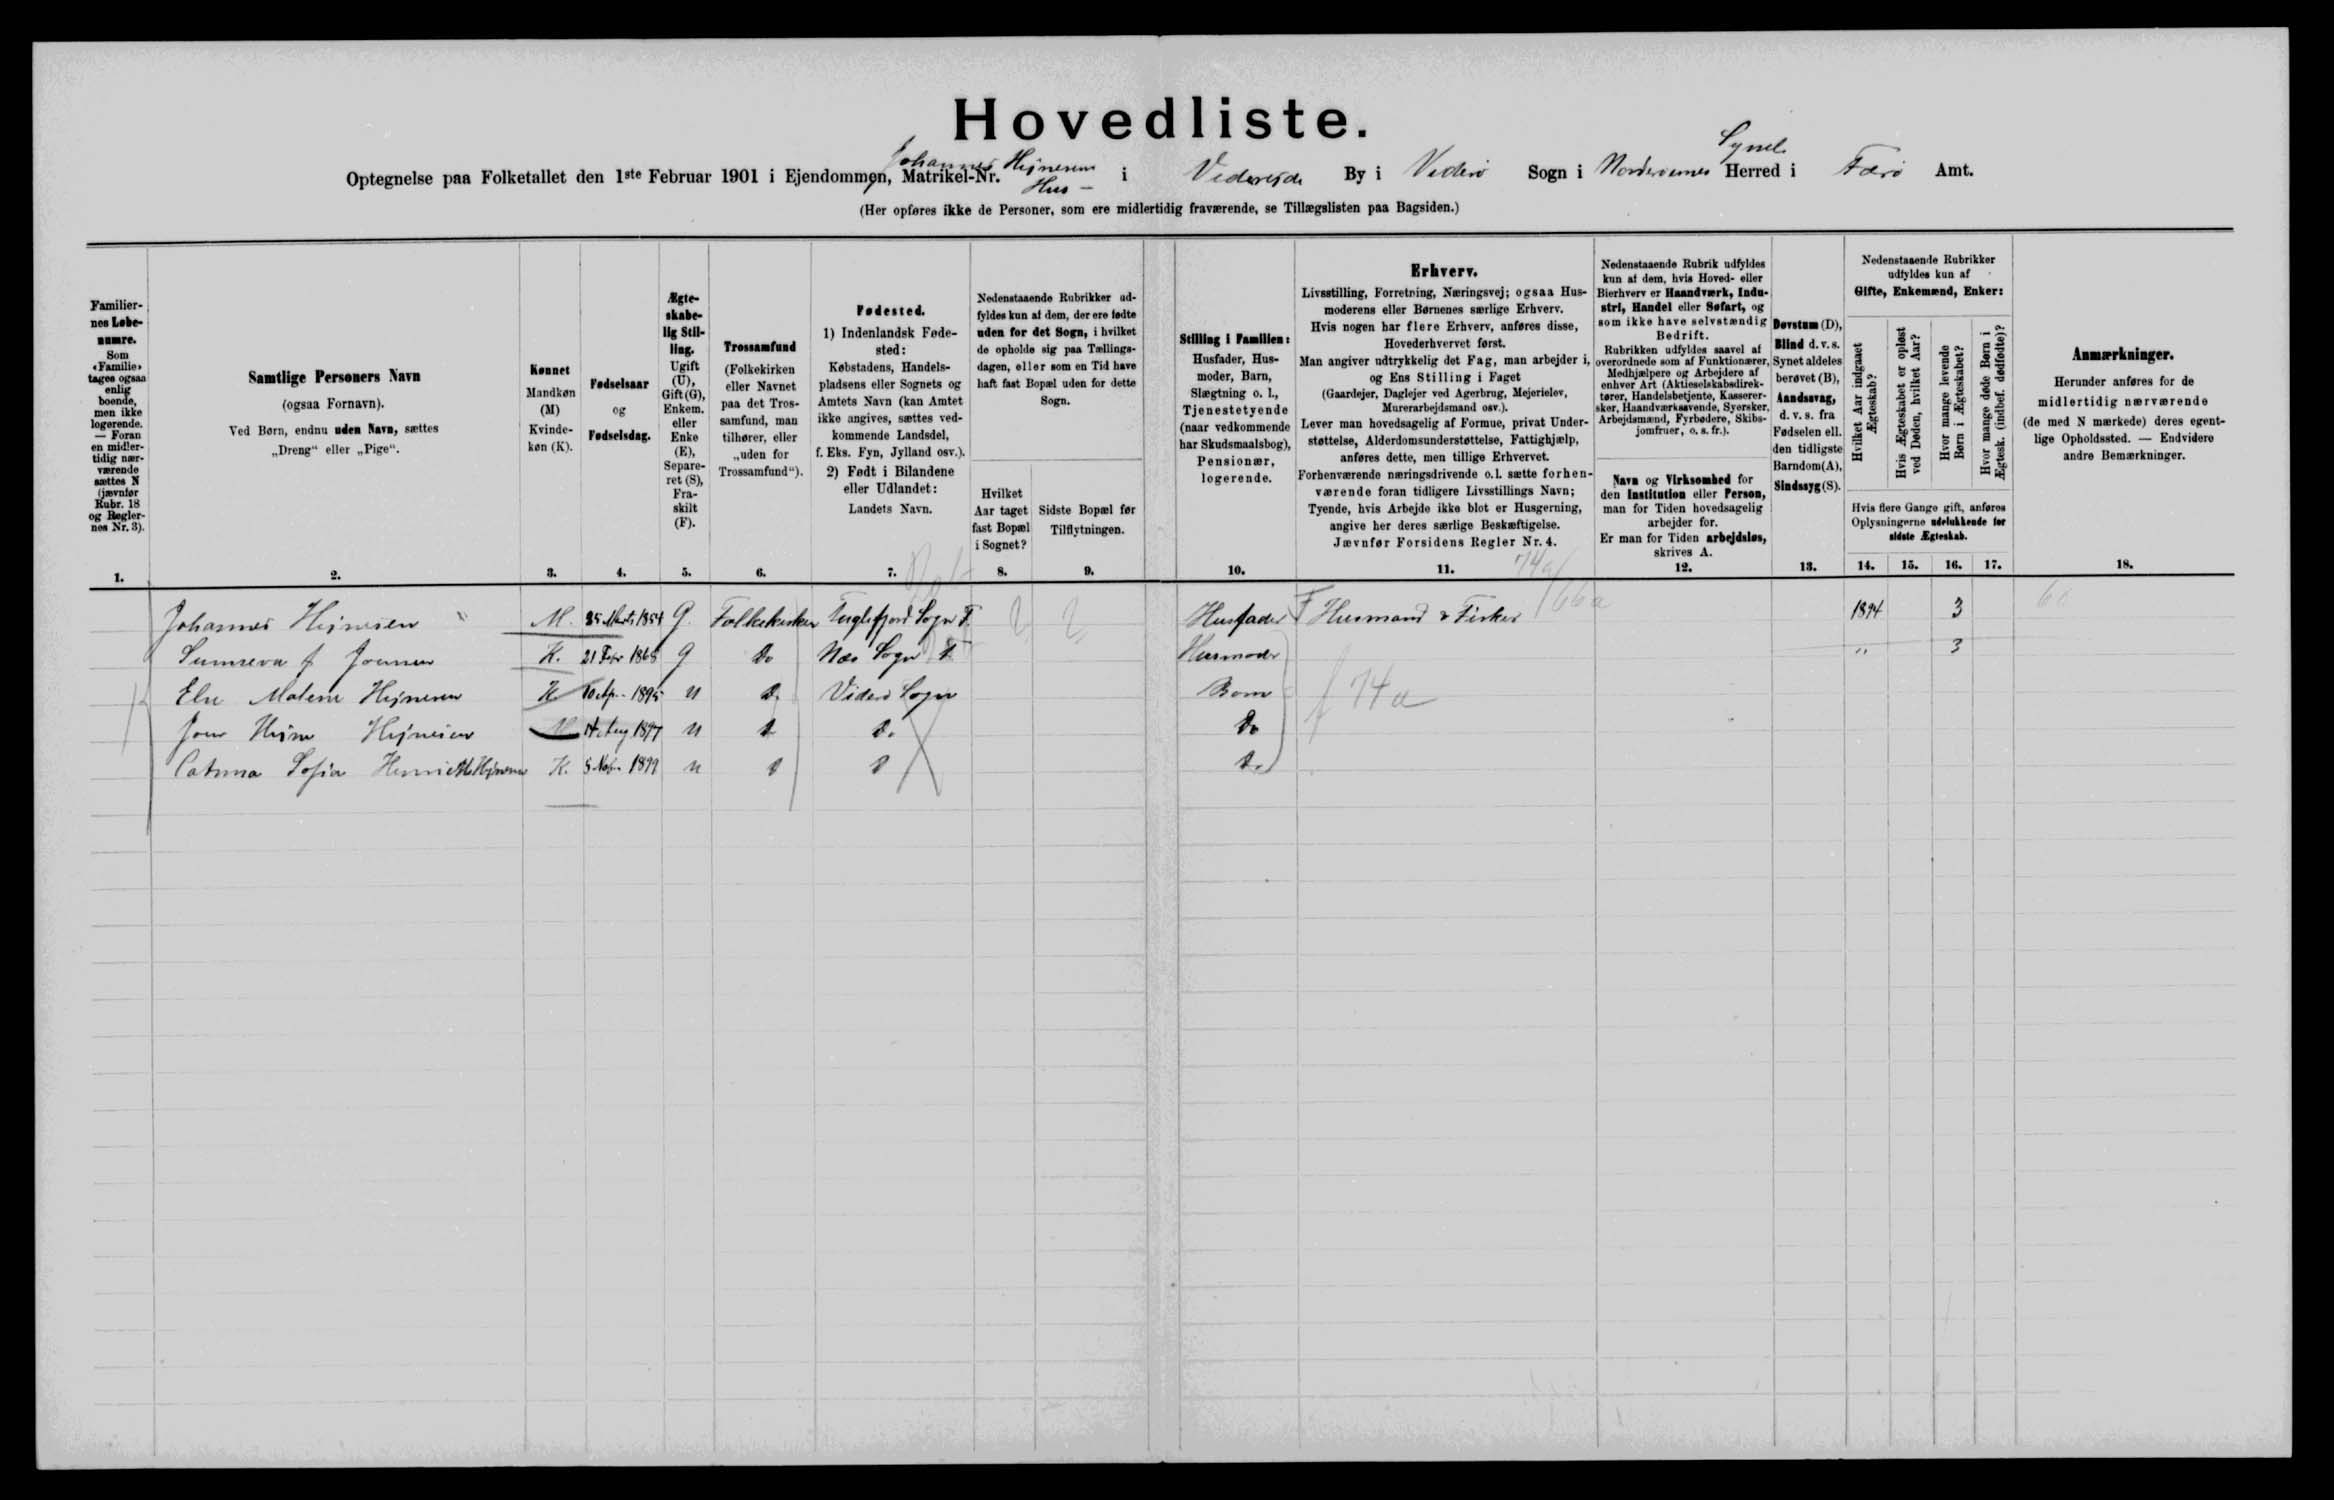 Hovedliste.
Optegnelse paa Folketallet den 1ste Februar 1901 i Ejendommen, Matrikel-Nr. Johannes Hejnesens Hus – i Videreide By i Viderø Sogn i Norderøernes Syssel Herred i Færø Amt.
(Her opføres ikke de Personer, som ere midlertidig fraværende, se Tillægslisten paa Bagsiden.)
Familier-
nes Løbe-
numre.
Som
«Familie»
tages ogsaa
enlig
boende,
men ikke
logerende.
— Foran
en midler-
tidig nær-
værende
sættes N
(jævnfør
Rubr. 18
og Regler-
nes Nr. 3).
1.
Samtlige Personers Navn
(ogsaa Fornavn).
Ved Børn, endnu uden Navn, sættes
„Dreng“ eller „Pige“.
2.
Kønnet
Mandkøn
(M)
Kvinde-
køn (K).
3.
Fødselsaar
og
Fødselsdag.
4.
Ægte-
skabe-
lig Stil-
ling.
Ugift
(U),
Gift (G),
Enkem.
eller
Enke
(E),
Separe-
ret (S),
Fra-
skilt
(F).
5.
Trossamfund
(Folkekirken
eller Navnet
paa det Tros-
samfund, man
tilhører, eller
„uden for
Trossamfund“).
6.
Fødested.
1) Indenlandsk Føde-
sted:
Købstadens, Handels-
pladsens eller Sognets og
Amtets Navn (kan Amtet
ikke angives, sættes ved-
kommende Landsdel,
f. Eks. Fyn, Jylland osv.).
2) Født i Bilandene
eller Udlandet:
Landets Navn.
7.
Nedenstaaende Rubrikker ud-
fyldes kun af dem, der ere fødte
uden for det Sogn, i hvilket
de opholde sig paa Tællings-
dagen, eller som en Tid have
haft fast Bopæl uden for dette
Sogn.
Hvilket
Aar taget
fast Bopæl
i Sognet?
8.
Sidste Bopæl før
Tilflytningen.
9.
Stilling i Familien:
Husfader, Hus-
moder, Barn,
Slægtning o. l.,
Tjenestetyende
(naar vedkommende
har Skudsmaalsbog),
Pensionær,
logerende.
10.
Erhverv.
Livsstilling, Forretning, Næringsvej; ogsaa Hus-
moderens eller Børnenes særlige Erhverv.
Hvis nogen har flere Erhverv, anføres disse,
Hovederhvervet først.
Man angiver udtrykkelig det Fag, man arbejder i,
og Ens Stilling i Faget
(Gaardejer, Daglejer ved Agerbrug, Mejerielev,
Murerarbejdsmand osv.).
Lever man hovedsagelig af Formue, privat Under-
støttelse, Alderdomsunderstøttelse, Fattighjælp,
anføres dette, men tillige Erhvervet.
Forhenværende næringsdrivende o.l. sætte forhen-
værende foran tidligere Livsstillings Navn;
Tyende, hvis Arbejde ikke blot er Husgerning,
angive her deres særlige Beskæftigelse.
Jævnfør Forsidens Regler Nr. 4.
11.
Nedenstaaende Rubrik udfyldes
kun af dem, hvis Hoved- eller
Bierhverv er Haandværk, Indu-
stri, Handel eller Søfart, og
som ikke have selvstændig
Bedrift.
Rubrikken udfyldes saavel af
overordnede som af Funktionærer,
Medhjælpere og Arbejdere af
enhver Art (Aktieselskabsdirek-
tører, Handelsbetjente, Kasserer-
sker, Haandværkssvende, Syersker,
Arbejdsmænd, Fyrbødere, Skibs-
jomfruer, o. s. fr.).
Navn og Virksomhed for
den Institution eller Person,
man for Tiden hovedsagelig
arbejder for.
Er man for Tiden arbejdsløs,
skrives A.
12.
Døvstum (D),
Blind d. v. s.
Synet aldeles
berøvet (B),
Aandssvag,
d. v. s. fra
Fødselen ell.
den tidligste
Barndom (A),
Sindssyg (S).
13.
Nedenstaaende Rubrikker
udfyldes kun af
Gifte, Enkemænd, Enker:
Hvilket Aar indgaaet Ægteskab?
Hvis Ægteskabet er opløst ved Døden, hvilket Aar?
Hvor mange levende Børn i Ægteskabet?
Hvor mange døde Børn i Ægtesk. (indbef. dødfødte)?
Hvis flere Gange gift, anføres
Oplysningerne udelukkende for
sidste Ægteskab.
14. 15. 16. 17.
Anmærkninger.
Herunder anføres for de
midlertidig nærværende
(de med N mærkede) deres egent-
lige Opholdssted. — Endvidere
andre Bemærkninger.
18.
74a/66a
Johannes Hejnesen M. 25 Marts 1854 G. Folkekirken Fuglefjord Sogn F. Husfader F Husmand & Fisker 1894 3
Sunneva f Joensen K. 21 Febr 1868 G Do Næs Sogn Husmoder " 3
Else Malene Hejnesen K 1895 U Do Viderø Sogn Barn 74a
Joen Hejne Hejnesen M 14 Aug 1897 U Do Do Do
Catrina Sofia Henriette Hejnesen K. 8 Nov. 1899 U D D Do